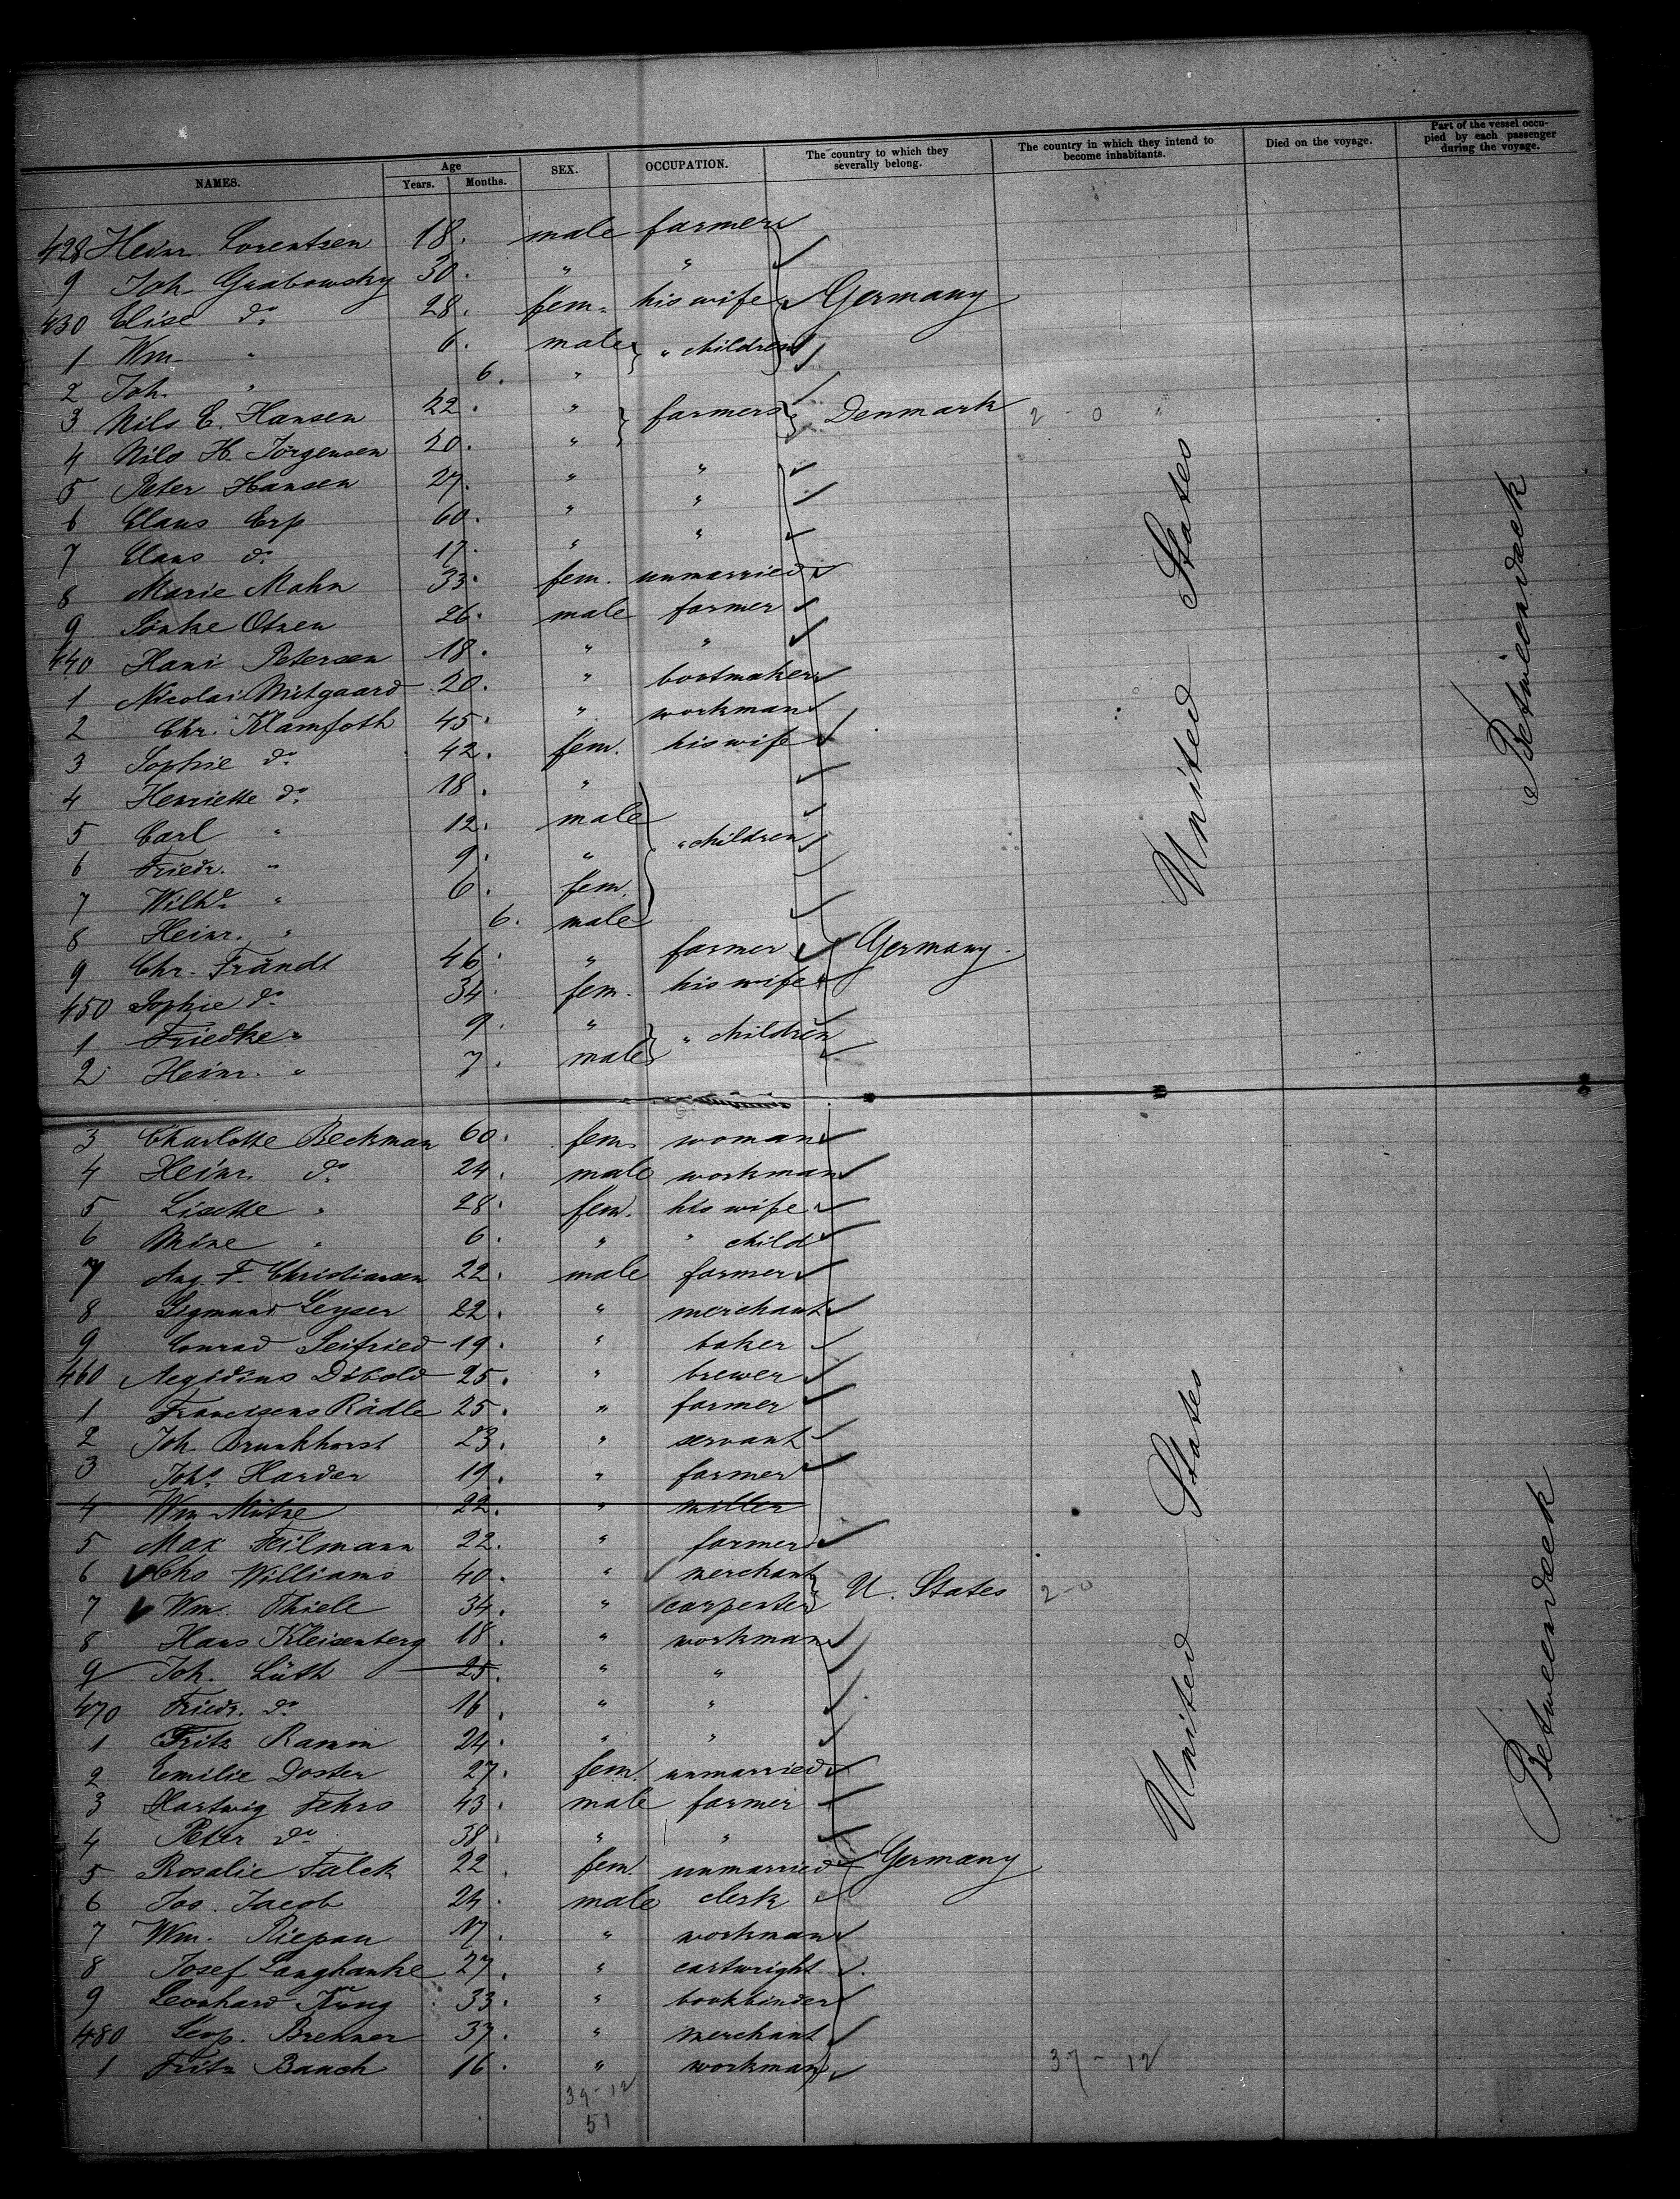 NAMES. Age Years. Months. SEX. OCCUPATION. The country to which they severally belong. The country in which they intend to become inhabitants. Died on the voyage. Part of the vessel occupied by each passenger during the voyage.
428 Heinr. Lorentzen 18. male farmer
9 Joh Grabowsky 30. " "
430 Elise do 28. fem. his wife Germany
1 Wm " 6. male " children
2 Joh. " 6. "
3 Nils E. Hansen 22. " farmers Denmark 2-0
4 Nils H. Jörgensen 20. "
5 Peter Hansen 27. " "
6 Claus Erp 60. " "
7 Claus do 17. " "
8 Marie Mahn 33. fem. unmarried
9 Sönke Otzen 26. male farmer
440 Hans Petersen 18. " "
1 Nicolai 20. " bootmaker
2 Chr. Klamfoth 45. " workman
3 Sophie do 42. fem. his wife
4 Henriette do 18. "
5 Carl " 12. male " children
6 Friedr. " 9. "
7 Wilhe " 6. fem.
8 Heinr. " 6. male
9 Chr. Frändt 46. " farmer Germany.
450 Sophie do 34. fem. his wife
1 Friedke " 9. " " children
2 Heinr. " 7. male
United States
Betweendeck
3 Charlotte Beckman 60. fem. woman
4 Heinr. do 24. male workman
5 Lisette " 28. fem. his wife
6 Mine " 6. " " child
7 Aug. F. Christiansen 22. male farmer
8 Sigmund Leyser 22. " merchant
9 Conrad Seifried 19. " baker
460 Aegidius Dibold 25. " brewer
1 Rädle 25. " farmer
2 Joh. Brunkhorst 23. " servant
3 Johs Harder 19. " farmer
4 Wm 22. " miller
5 Max Feilmann 22. " farmer
6 Chs Williams 40. " merchant U. States 2-0
7 Wm. Thiele 34. " carpenter
8 Hans Kleisenberg 18. " workman
9 Joh. Lüth 25. " "
470 Friedr. do 16. " "
1 Fritz Ramm 24. " "
2 Emilie Doster 27. fem. unmarried
3 Hartwig Fehrs 43. male farmer
4 Peter do 38. " "
5 Rosalie Falck 22. fem. unmarried Germany
6 Jos. Jacob 24. male clerk
7 Wm. Riepau 17. " workman
8 Josef Langhanke 27. " cartwright
9 Leonhard Kung 33. " bookbinder
480 Leop. Brenner 37. " merchant
1 Fritz Baach 16. " workman 37-12
United States
Betweendeck
39-12
51